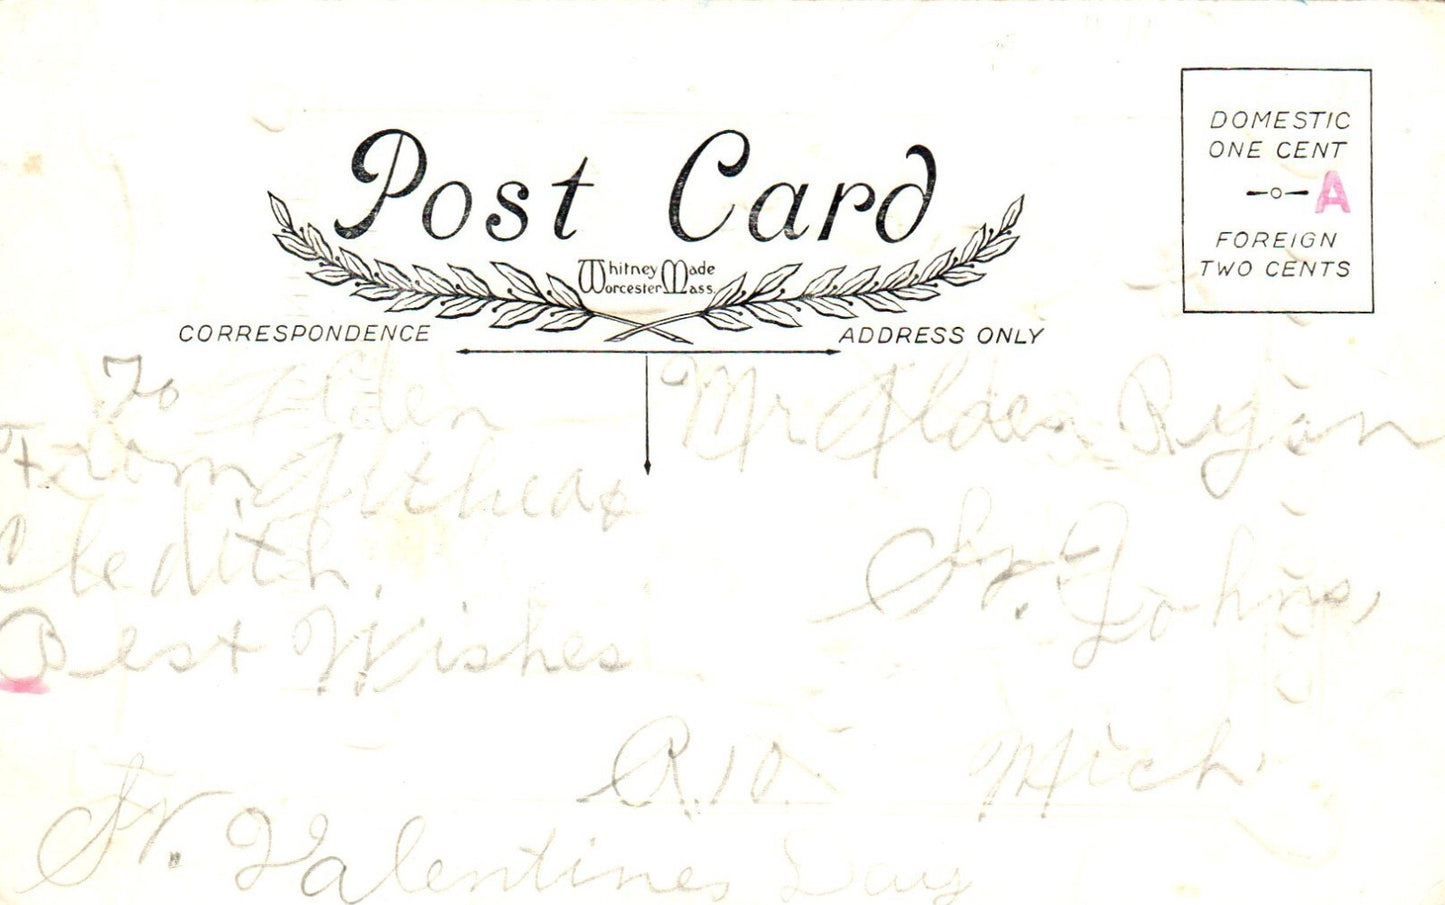 Post Card
Whitney Made
Worcester Mass.
DOMESTIC
ONE CENT
A
FOREIGN
TWO CENTS
CORRESPONDENCE
ADDRESS ONLY
To Alden
From
Cledith.
Best Wishes
St. Valentines Day
Mr Alden Ryan
St. Johns,
R.10. Mich.